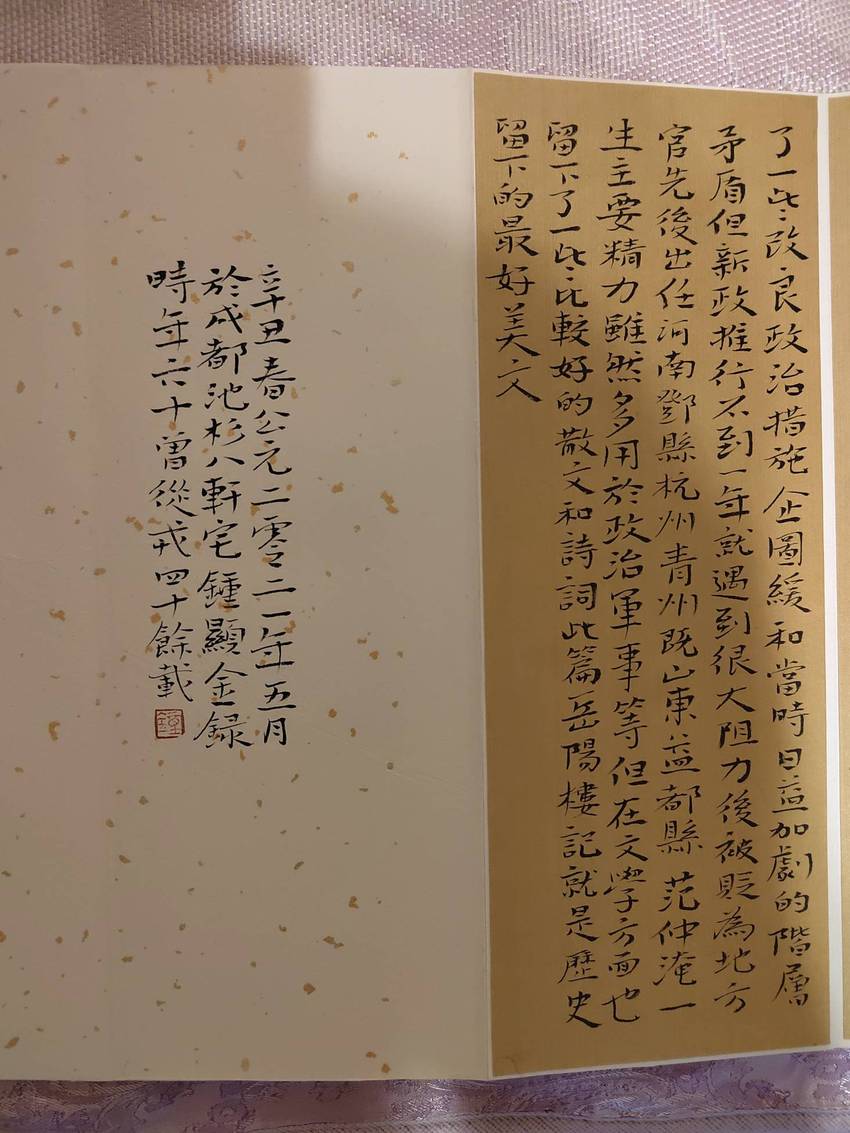 了一些改良政治措施企圖緩和當時日益加劇的階層
矛盾但新政推行不到一年就遇到很大阻力後被貶為地方
官先後出任河南鄧縣杭州青州既山東益都縣范仲淹一
生主要精力雖然多用於政治軍事等但在文學方面也
留下了一些比較好的散文和詩詞此篇岳陽樓記就是歷史
留下的最好美文
辛丑春公元二零二一年五月
於成都池杉八軒宅鍾顯金録
時年六十曾從戎四十餘載